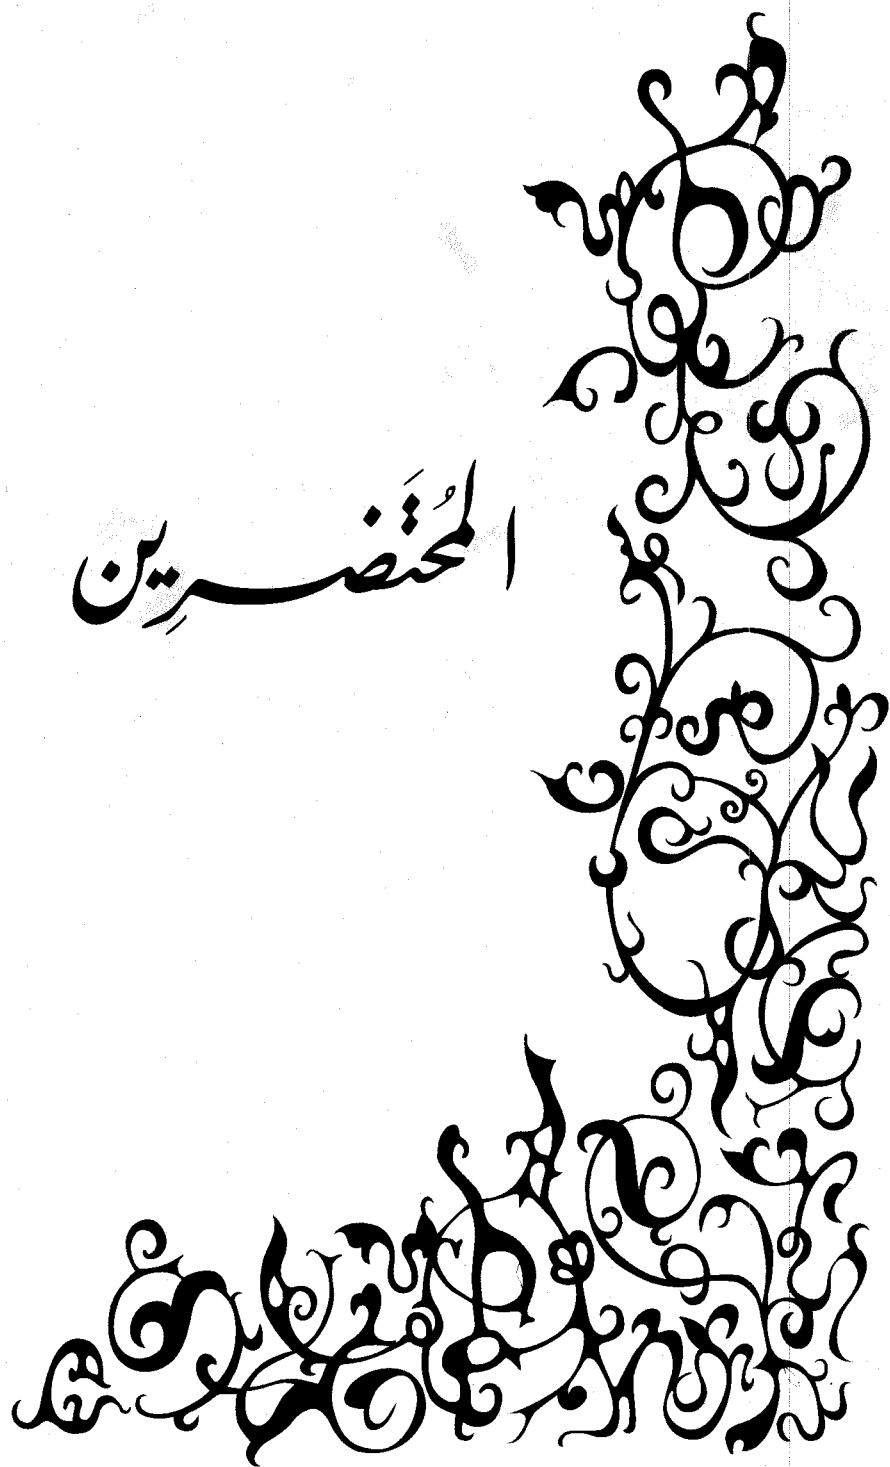 المُحتَضرِين